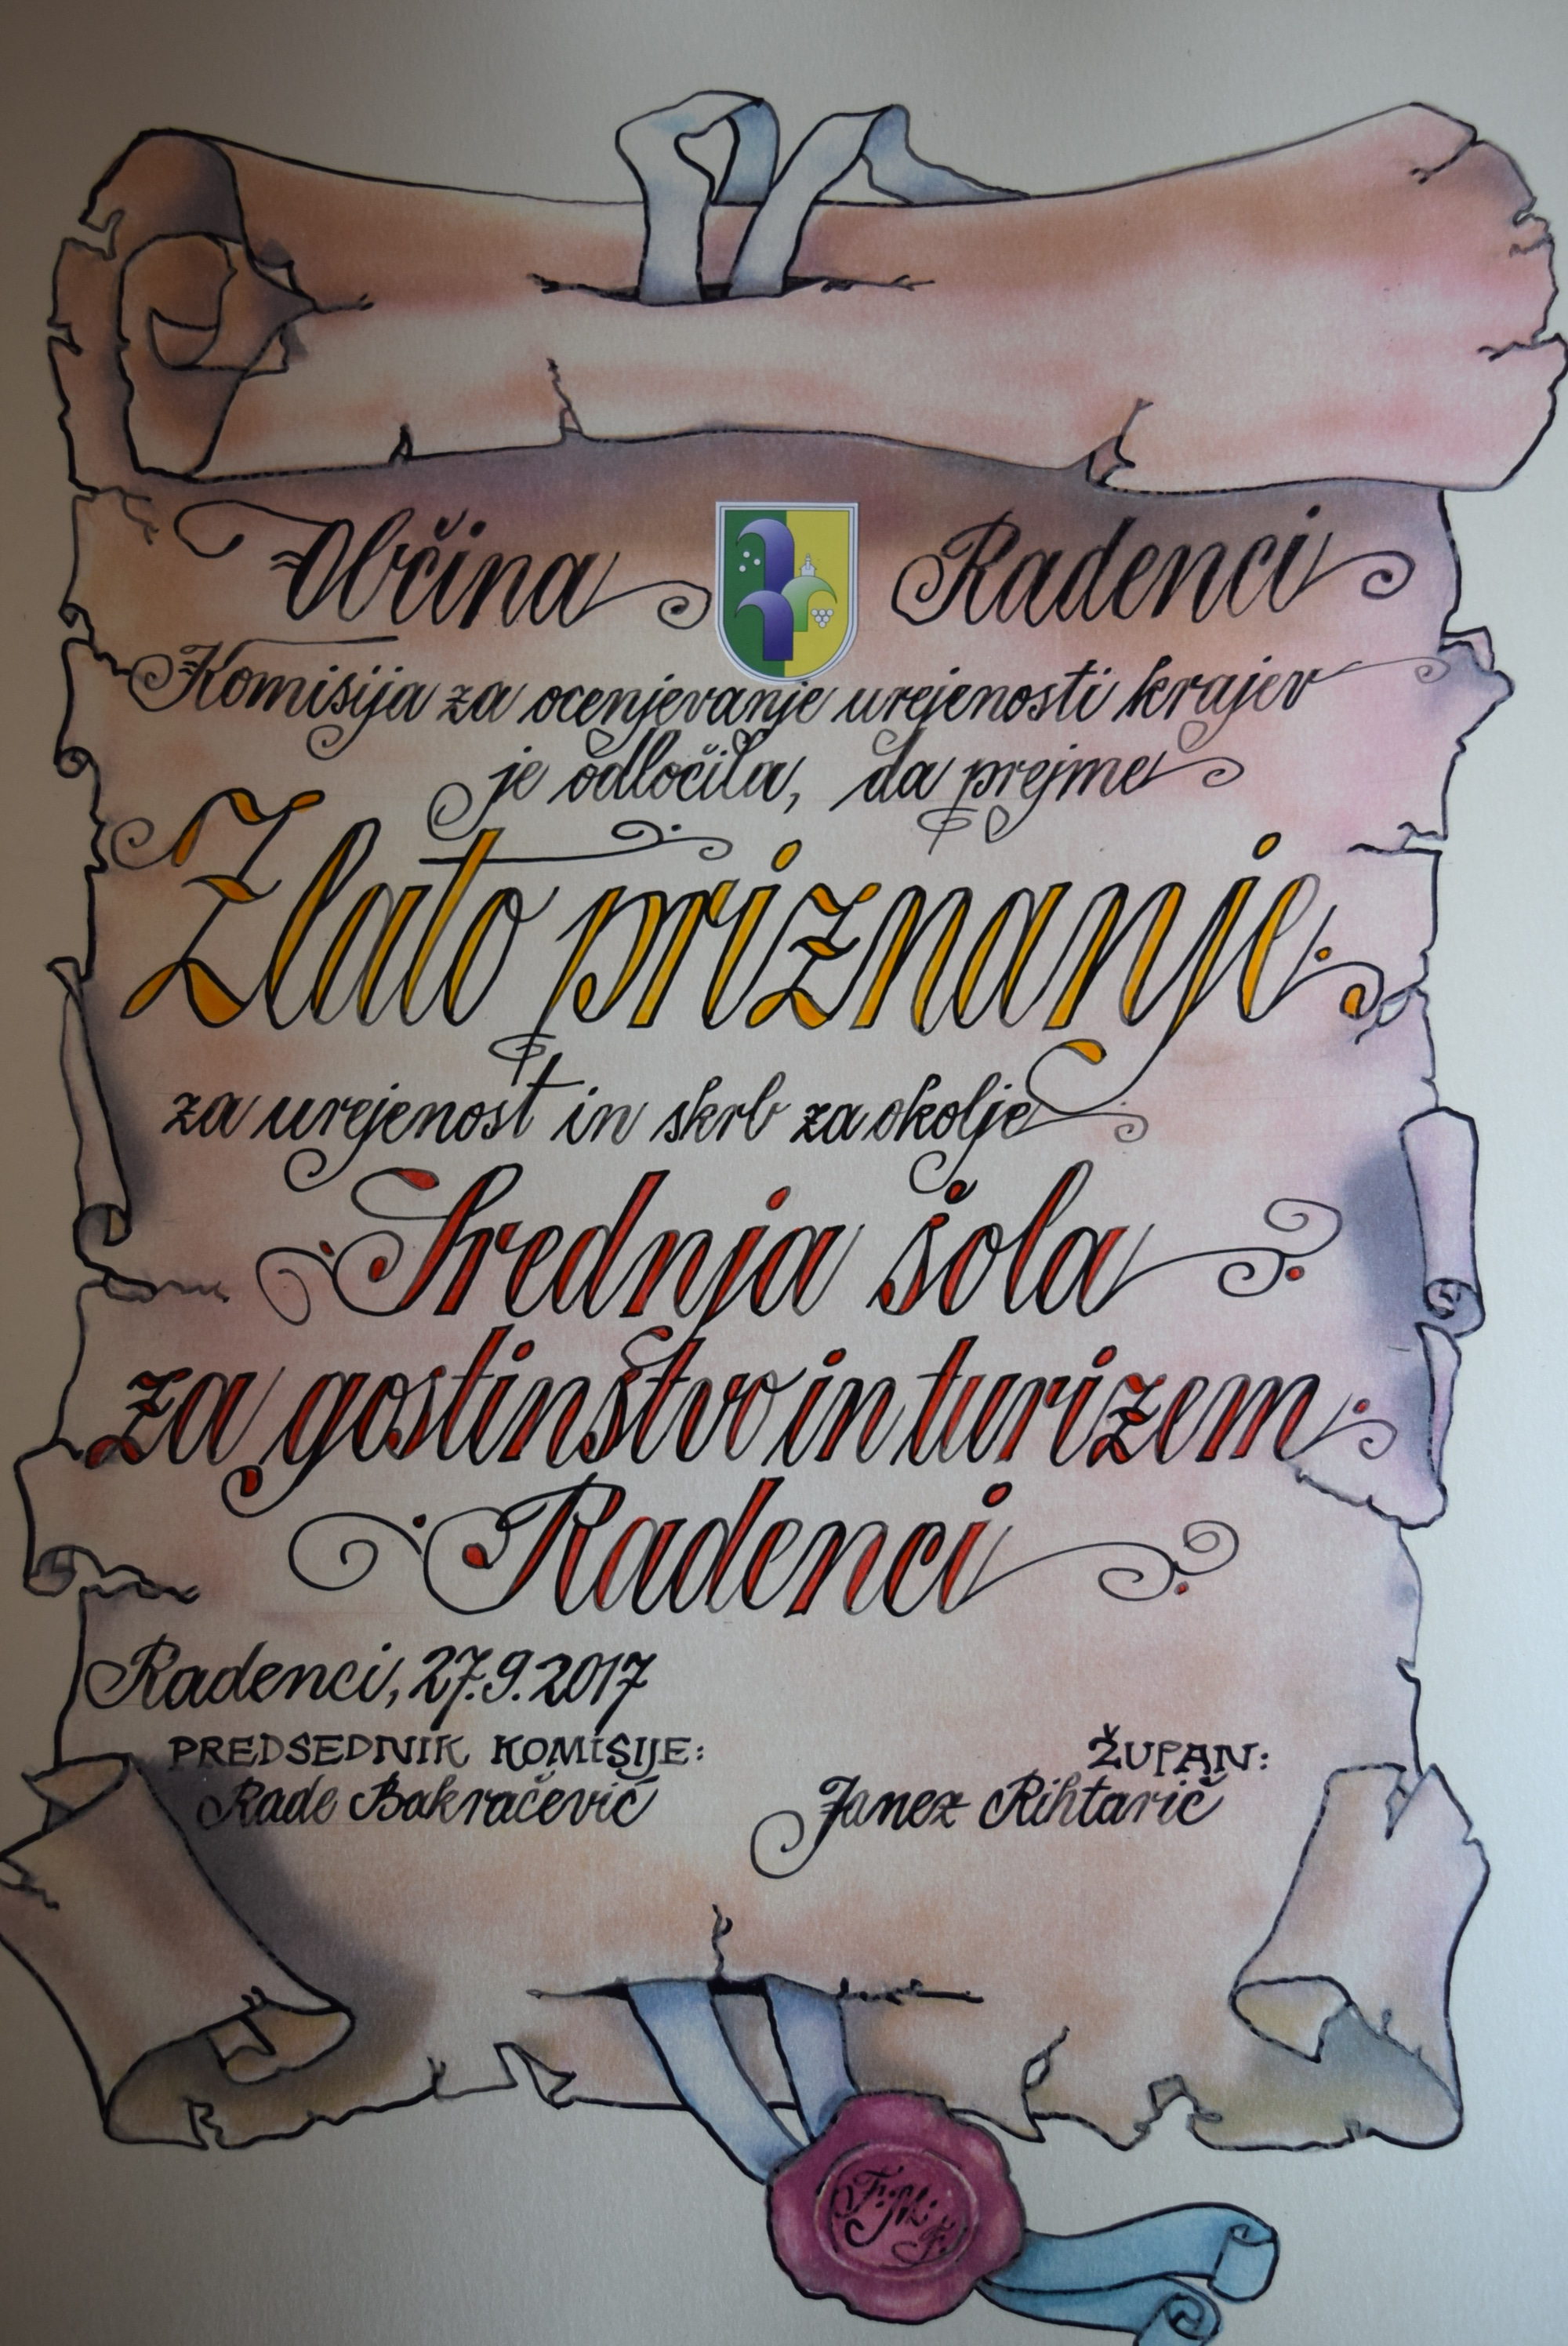 Občina Radenci
Komisija za ocenjevanje urejenosti krajev
je odločila, da prejme
Zlato priznanje
za urejenost in skrb za okolje
Srednja šola
za gostinstvo in turizem
Radenci
Radenci, 27.9.2017
PREDSEDNIK KOMISIJE: ŽUPAN:
Rade Bakračević Janez Rihtarič